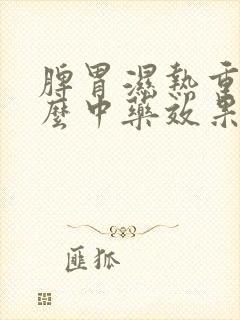 脾胃濕熱重
麼中藥效果
匪狐